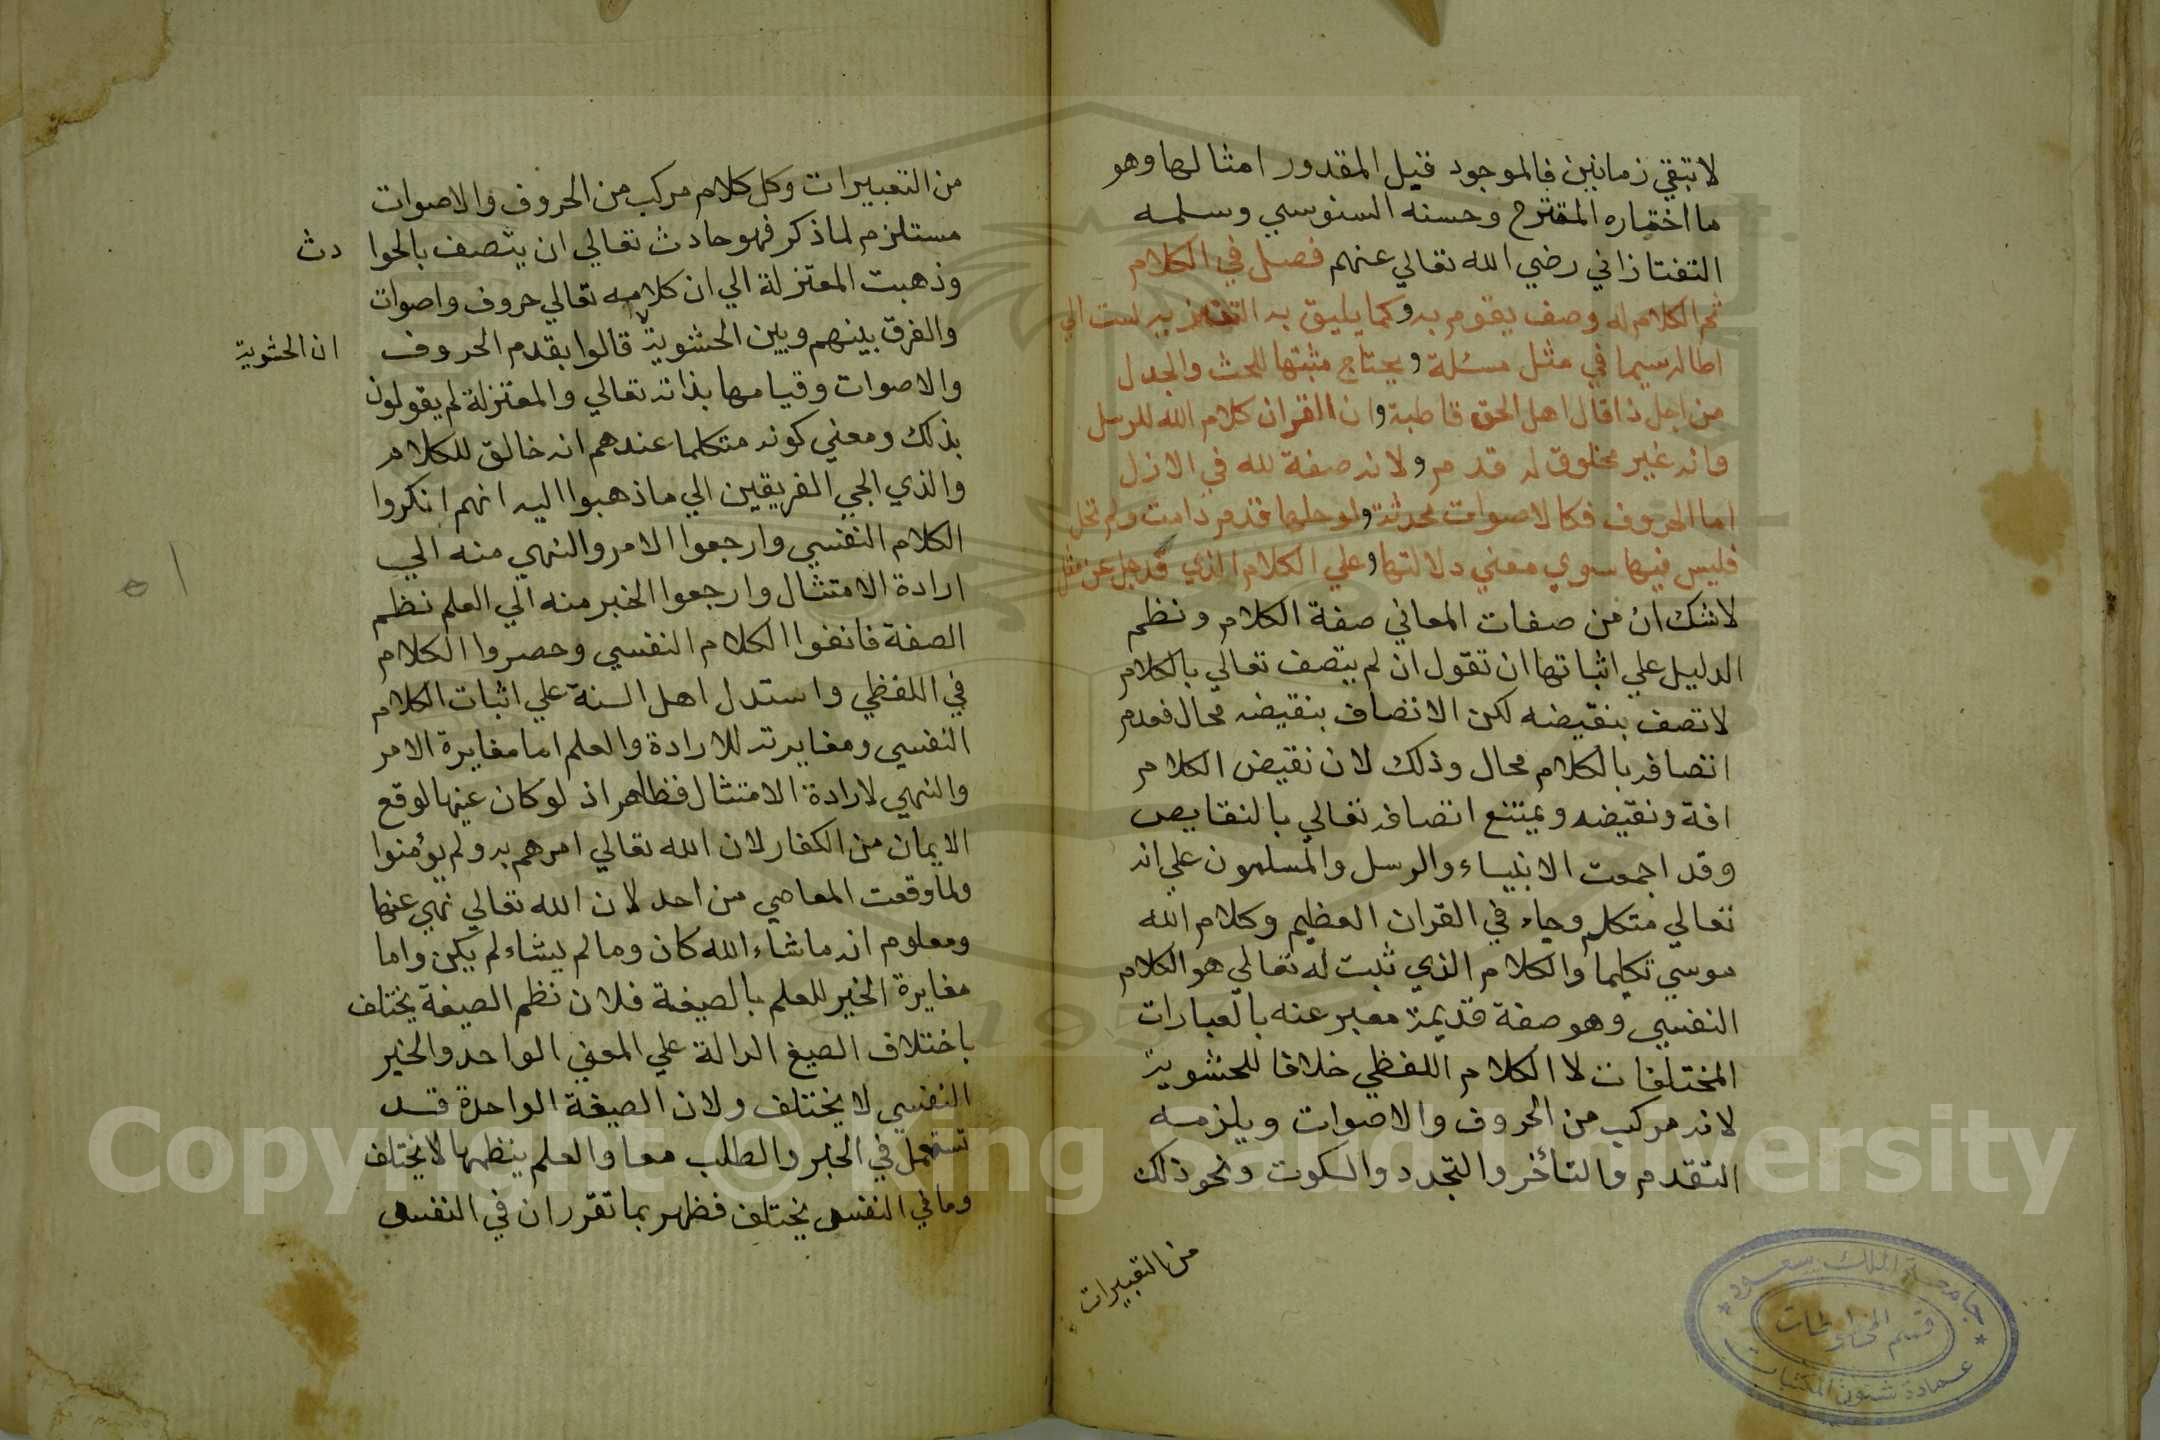 لا تبقي زمانين فالموجود قبل المقدور امثالها وهو
ما اختاره المقترح وحسنه السنوسي وسلمه
التفتازاني رضي الله تعالي عنهم فصل في الكلام
ثم الكلام له وصف يقوم به وكما يليق به لست الي
اطاله سيما في مثل مسئلة ويحتاج مثبتها للبحث والجدل
من اجل ذا قال اهل الحق قاطبة وان القران كلام الله للرسل
وانه غير مخلوق له قدم ولانه صفة لله في الازل
اما الحروف فكالاصوات محدثة ولو حلها قدم دامت ولم تحل
فليس فيها سوي معني دلالتها وعلي الكلام الذي قد جل عن مثل
لا شك ان من صفات المعاني صفة الكلام ونظم
الدليل علي اثباتها ان تقول ان لم يتصف تعالي بالكلام
لاتصف بنقيضه لكن الاتصاف بنقيضه محال فعدم
اتصافه بالكلام محال وذلك لان نقيض الكلام
افة ونقيضه ويمتنع اتصافه تعالي بالنقايص
وقد اجمعت الانبياء والرسل والمسلمون علي انه
تعالي متكلم وجاء في القران العظيم وكلام الله
موسي تكليما والكلام الذي ثبت له تعالي هو الكلام
النفسي وهو صفة قديمة معبر عنه بالعبارات
المختلفات لا الكلام اللفظي خلافا للحشوية
لانه مركب من الحروف والاصوات ويلزمه
التقدم والتأخر والتجدد والسكوت ونحو ذلك
من التعبيرات
من التعبيرات وكل كلام مركب من الحروف والاصوات
مستلزم لما ذكر فهو حادث تعالي ان يتصف بالحوا دث
وذهبت المعتزلة الي ان كلامه تعالي حروف واصوات
والفرق بينهم وبين الحشوية قالوا بقدم الحروف
ان الحشوية
والاصوات وقيامها بذاته تعالي والمعتزلة لم يقولون
بذلك ومعني كونه متكلما عندهم انه خالق للكلام
والذي الجي الفريقين الي ما ذهبوا اليه انهم انكروا
الكلام النفسي وارجعوا الامر والنهي منه الي
ارادة الامتثال وارجعوا الخبر منه الي العلم نظم
الصفة فانفوا الكلام النفسي وحصروا الكلام
في اللفظي واستدل اهل السنة علي اثبات الكلام
النفسي ومغايرته للارادة والعلم اما مغايرة الامر
والنهي لارادة الامتثال فظاهر اذ لو كان عينها لوقع
الايمان من الكفار لان الله تعالي امرهم به ولم يؤمنوا
ولما وقعت المعاصي من احد لان الله تعالي نهي عنها
ومعلوم انه ما شاء الله كان وما لم يشاء لم يكن واما
مغايرة الخبر للعلم بالصيغة فلان نظم الصيغة يختلف
باختلاف الصيغ الدالة علي المعني الواحد والخبر
النفسي لا يختلف ولان الصيغة الواحدة قد
تستعمل في الخبر والطلب معا والعلم ينظمها لا يختلف
وما في النفس يختلف فظهر بما تقرر ان في النفس
٥١
جامعة الملك سعود
قسم المخطوطات
عمادة شئون المكتبات
Copyright © King Saud University